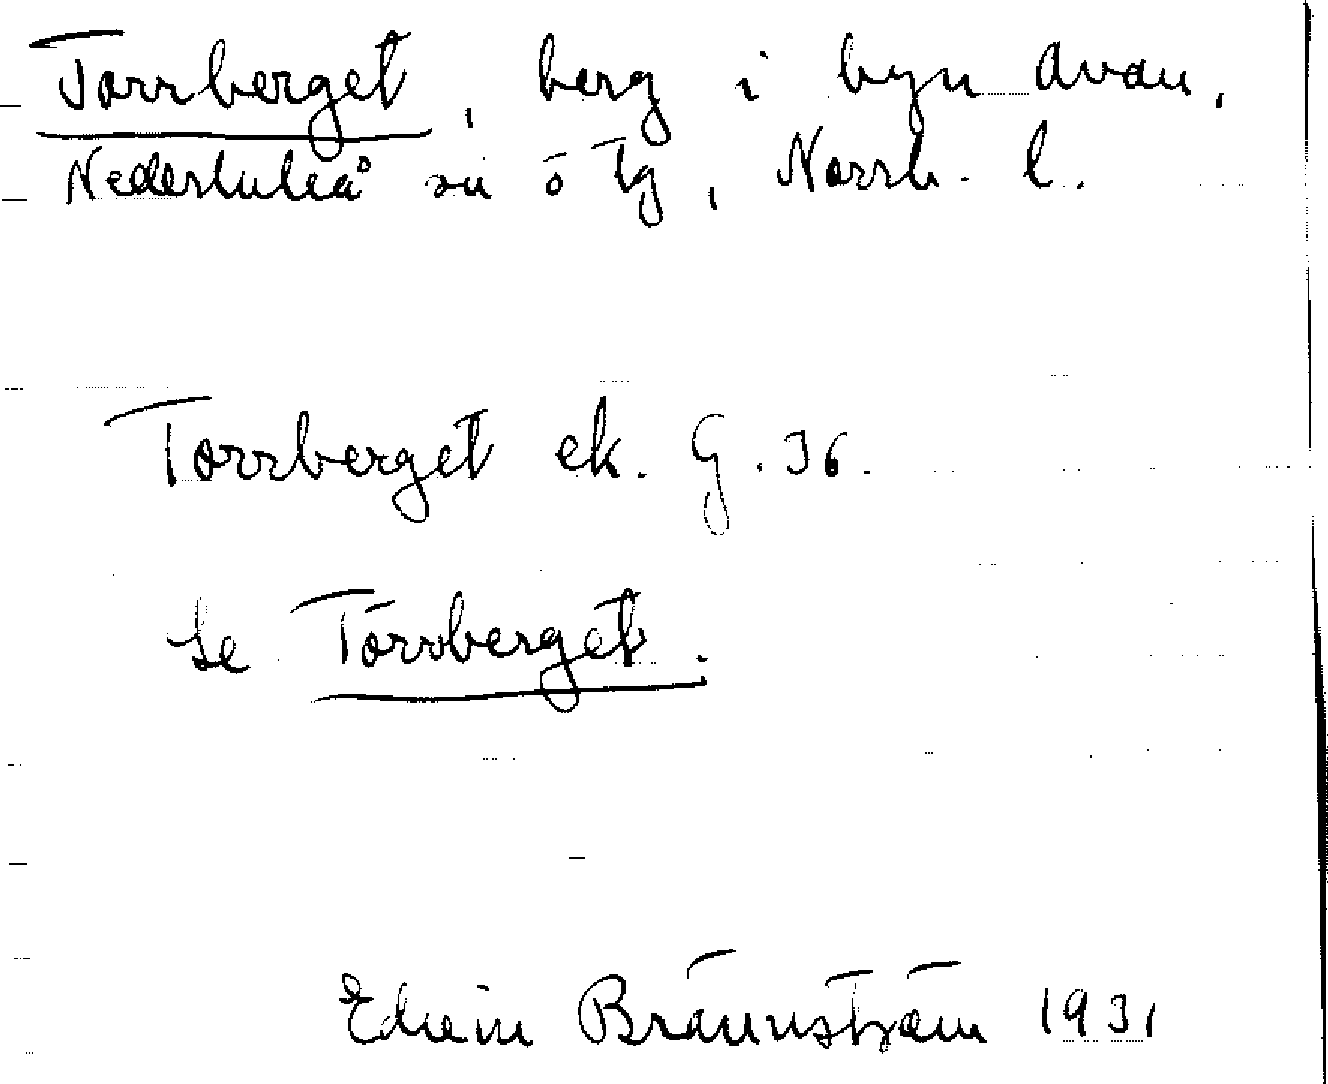 Torrberget, berg i byn Avan,
Nederluleå sn ö tg, Norrb. l.
Torrberget ek. G. 36.
Se Törrberget.
Edvin Brännström 1931